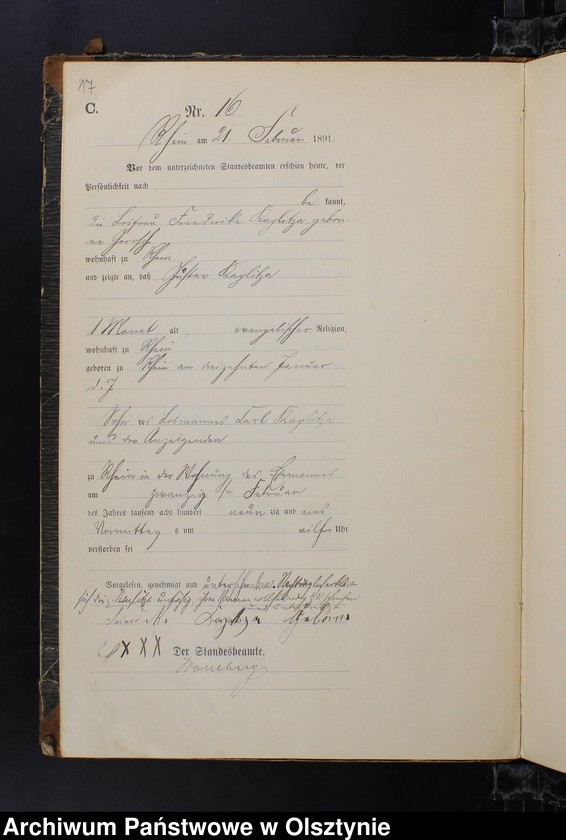 17
C.
Nr. 16
Rhein am 21. Februar 1891.
Vor dem unterzeichneten Standesbeamten erschien heute, der
Persönlichkeit nach
be kannt,
die Losfrau Friederike Kaylitza gebor-
ne
wohnhaft zu Rhein
und zeigte an, daß Gustav Kaylitza
1 Monat alt, evangelischer Religion,
wohnhaft zu Rhein
geboren zu Rhein am dreizehnten Januar
d. J.
Sohn des Losmannes Carl Kaylitza
und der Anzeigenden
zu Rhein in der Wohnung des Ehemannes
am zwanzig sten Februar
des Jahres tausend acht hundert neun zig und eins
Vormittag s um elf Uhr
verstorben sei
Vorgelesen, genehmigt und unterschrieben. Nachträglich erklärt
sich die Kaylitza unfähig, ihren Namen vollständig zu schreiben
und unterkreuzt
Kaylitza Geborne
XXX Der Standesbeamte.